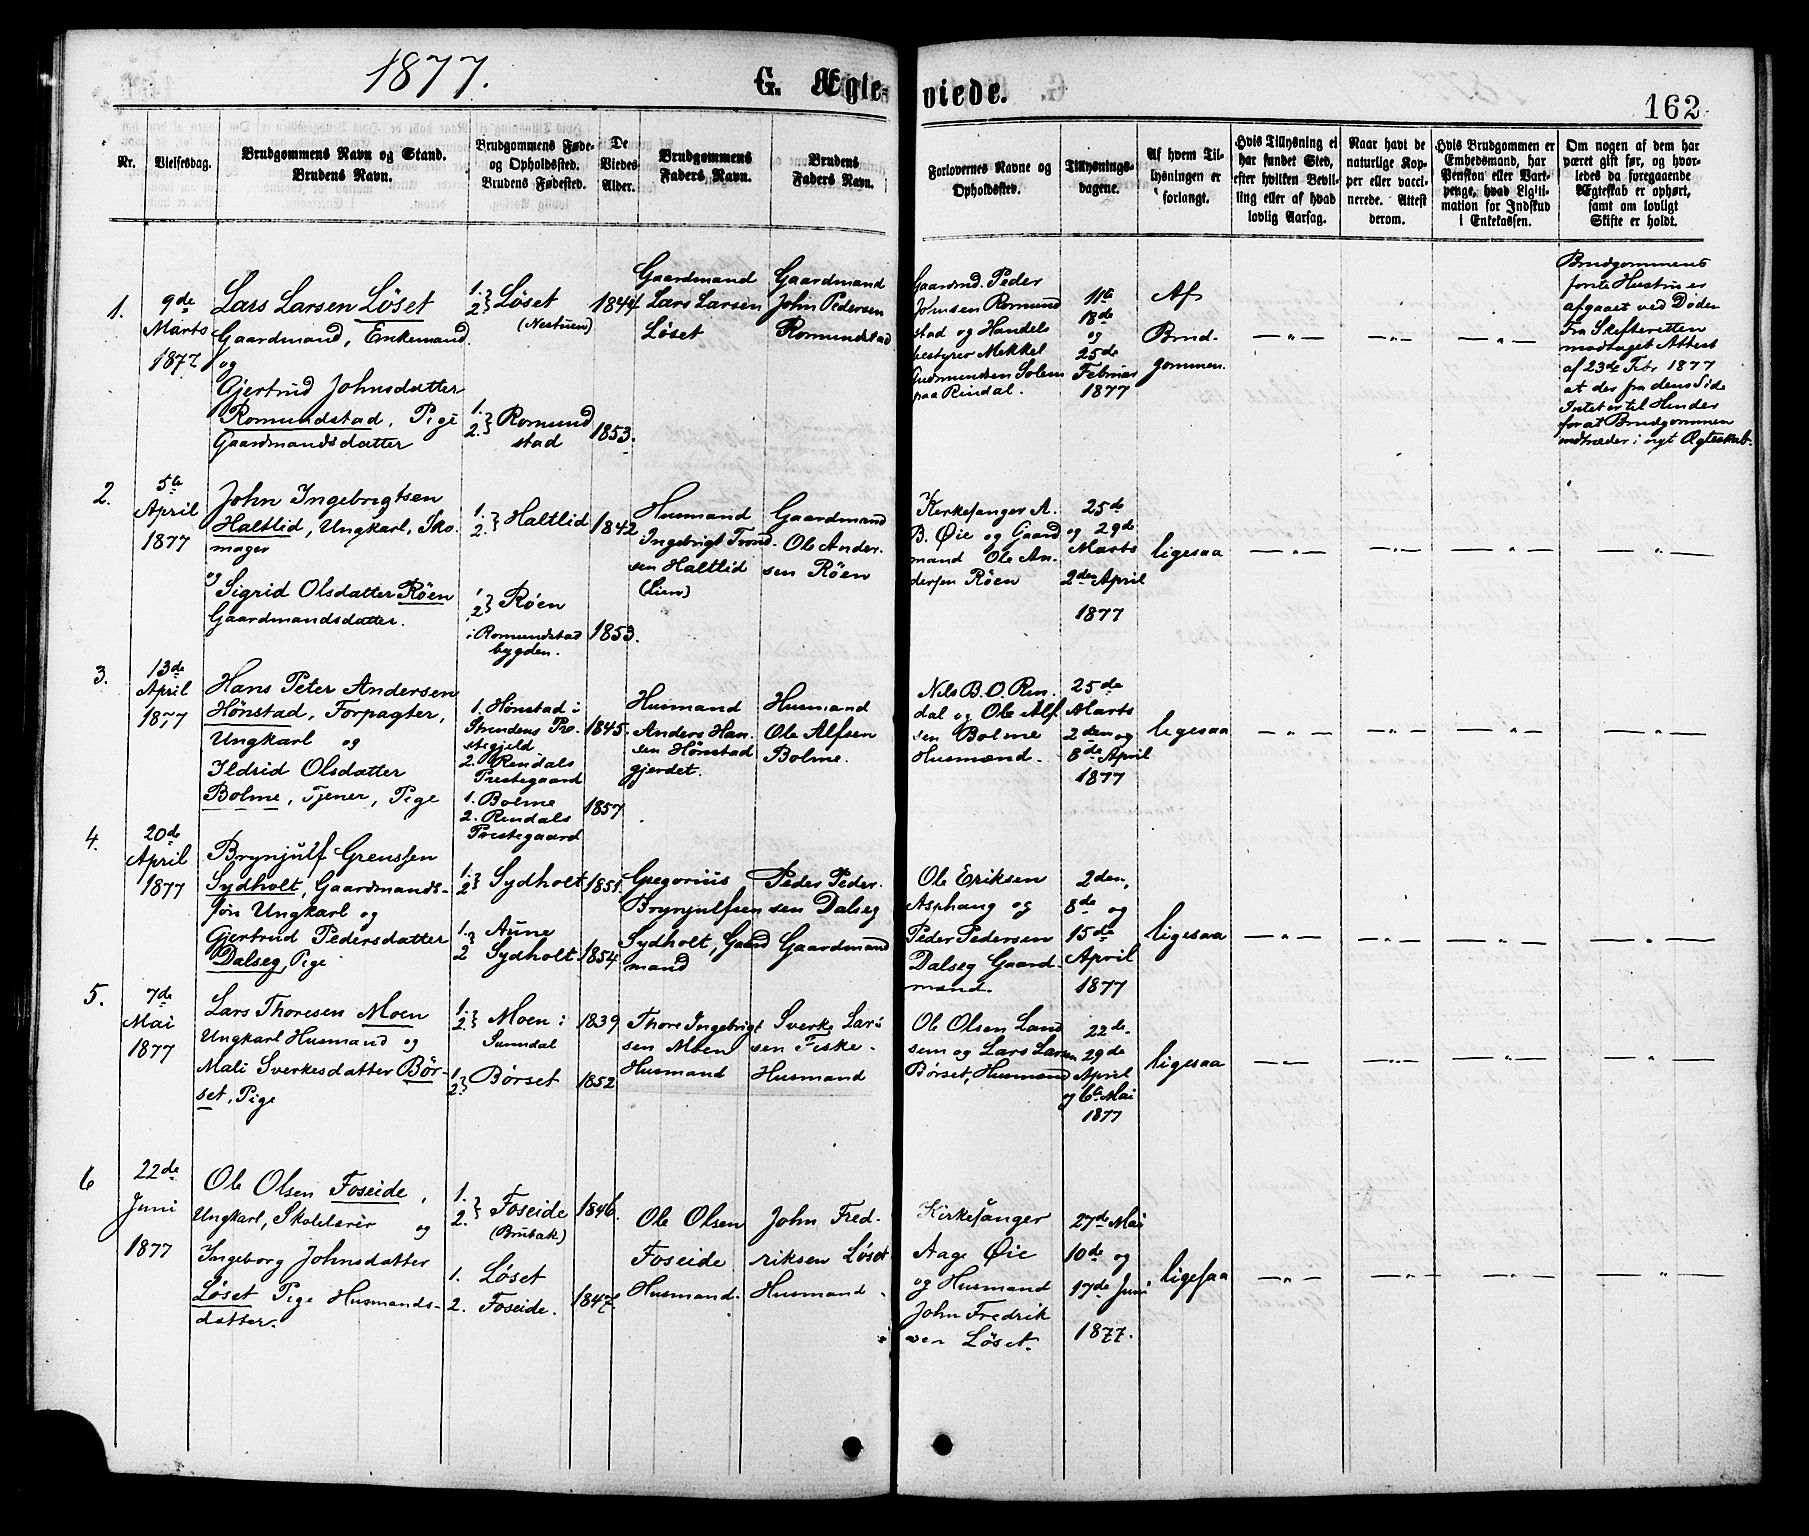 1877.
G. Ægte-
viede.
162
Nr.
Vielsesdag.
Brudgommens Navn og Stand.
Brudens Navn.
Brudgommens Føde-
og Opholdssted.
Brudens Fødested.
De
Viedes
Alder.
Brudgommens
Faders Navn.
Brudens
Faders Navn.
Forlovernes Navne og
Opholdssted.
Tillysnings-
dagene.
Af hvem Til-
lysningen er
forlangt.
Hvis Tillysning ei
har fundet Sted,
efter hvilken Bevil-
ling eller af hvad
lovlig Aarsag.
Naar havt de
naturlige Kop-
per eller vacci-
nerede. Attest
derom.
Hvis Brudgommen er
Embedsmand, har
Pension eller Vart-
penge, hvad Ligiti-
mation for Indskud
i Enkekassen.
Om nogen af dem har
været gift før, og hvor-
ledes da foregaaende
Ægteskab er ophørt,
samt om lovligt
Skifte er holdt.
1.
9de
Marts
1877
Lars Larsen Löset
Gaardmand, Enkemand.
og
Gjertrud Johnsdatter
Romundstad, Pige
Gaardmandsdatter
1.
2.} Løset
(Nestuen)
1.
2.} Romund
stad
1844.
1853.
Gaardmand
Lars Larsen
Löset
Gaardmand
John Pedersen
Romundstad
Gaardmd. Peder
Johnsen Romund
stad og Handels
bestyrer Mekkel
Gudmundsen Solem
paa Rindal.
11te
18de
og
25de
Februar
1877
Af
Brud-
gommen.
— " —
— " —
— " —
Brudgommens
første Hustru er
afgaaet ved Døden
Fra Skifteretten
modtaget Attest
af 23de Febr 1877
at der fra dens Side
Intet er til Hinder
for at Brudgommen
indtræder i nyt Ægteskab.
2.
5te
April
1877
John Ingebrigtsen
Haltlid, Ungkarl, Sko-
mager
og
Sigrid Olsdatter Röen
Gaardmandsdatter.
1.
2.} Haltlid
1.
2.} Röen
i Romundstad
bygden.
1842
1853.
Husmand
Ingebrigt Trond-
sen Haltlid
(Lien)
Gaardmand
Ole Ander-
sen Röen
Kirkesanger A.
B. Øie og Gaard
mand Ole An-
dersen Röen
25de
og 29de
Marts
2den April
1877
ligesaa
— " —
— " —
— " —
— " —
3.
13de
April
1877
Hans Peter Andersen
Hønstad, Forpagter,
Ungkarl og
Ildrid Olsdatter
Bolme, Tjener, Pige
1. Hønstad i
Strindens Præ-
stegjeld
2. Rindals
Prestegaard
1. Bolme
2. Rindals
Prestegaard
1845.
1857
Husmand
Anders Han-
sen Hönstad
gjerdet.
Husmand
Ole Alfsen
Bolme.
Nils B. O. Rin-
dal og Ole Alf
sen Bolme
Husmænd.
25de
Marts
2den og
8de April
1877
ligesaa
— " —
— " —
— " —
— " —
4.
20de
April
1877
Brynjulf Grenssen
Sydholt, Gaardmands-
søn Ungkarl og
Gjertrud Pedersdatter
Dalseg, Pige
1.
2} Sydholt
1. Aune
2 Sydholt
1851.
1854
Gregorius
Brynjulfsen
Sydholt, Gaard
mand
Peder Peder-
sen Dalseg
Gaardmand
Ole Eriksen
Asphaug og
Peder Pedersen
Dalseg Gaard-
mænd.
2den,
8de og
15de
April
1877
ligesaa
— " —
— " —
— " —
— " —
5.
7de
Mai
1877
Lars Thoresen Moen
Ungkarl Husmand og
Mali Sverkesdatter Bör-
set, Pige
1.
2.} Moen i
Surndal
1.
2.} Börset
1839
1852
Thore Ingebrigt
sen Moen
Husmand
Sverke Lar-
sen Fiske-
Husmand
Ole Olsen Land
sem og Lars Larsen
Børset, Husmænd
22de
29de
April
og 6te Mai
1877
ligesaa
— " —
— " —
— " —
— " —
6
22de
Juni
1877
Ole Olsen Foseide,
Ungkarl, Skolelærer og
Ingeborg Johnsdatter
Löset Pige Husmands-
datter.
1.
2.} Foseide
(Brubak)
1. Löset
2. Foseide.
1846.
1847
Ole Olsen
Foseide
Husmand.
John Fred-
riksen Löset
Husmand
Kirkesanger
Aage Øie
og Husmand
John Fredrik
sen Löset.
27de Mai
10de og
17de Juni
1877.
ligesaa
— " —
— " —
— " —
— " —